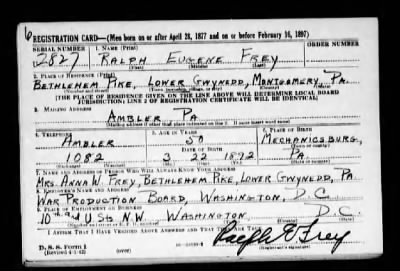 6
REGISTRATION CARD—(Men born on or after April 28, 1877 and on or before February 16, 1897)
SERIAL NUMBER 1. NAME (Print) ORDER NUMBER
2827 RALPH EUGENE FREY
(First) (Middle) (Last)
2. PLACE OF RESIDENCE (Print)
BETHLEHEM PIKE, LOWER GWYNEDD, MONTGOMERY, PA.
(Number and street) (Town, township, village, or city) (County) (State)
[THE PLACE OF RESIDENCE GIVEN ON THE LINE ABOVE WILL DETERMINE LOCAL BOARD
JURISDICTION; LINE 2 OF REGISTRATION CERTIFICATE WILL BE IDENTICAL]
3. MAILING ADDRESS
AMBLER PA
[Mailing address if other than place indicated on line 2. If same insert word same]
4. TELEPHONE 5. AGE IN YEARS 6. PLACE OF BIRTH
AMBLER 50 MECHANICSBURG,
DATE OF BIRTH
1082 3 22 1892 PA.
7. NAME AND ADDRESS OF PERSON WHO WILL ALWAYS KNOW YOUR ADDRESS
MRS. ANNA W. FREY, BETHLEHEM PIKE, LOWER GWYNEDD, PA
8. EMPLOYER'S NAME AND ADDRESS
WAR PRODUCTION BOARD, WASHINGTON, D.C.
9. PLACE OF EMPLOYMENT OR BUSINESS
10th and U Sts N.W. WASHINGTON D.C.
I AFFIRM THAT I HAVE VERIFIED ABOVE ANSWERS AND THAT THEY ARE TRUE.
D. S. S. Form 1
(Revised 4-1-42) Ralph E Frey
(Registrant's signature)